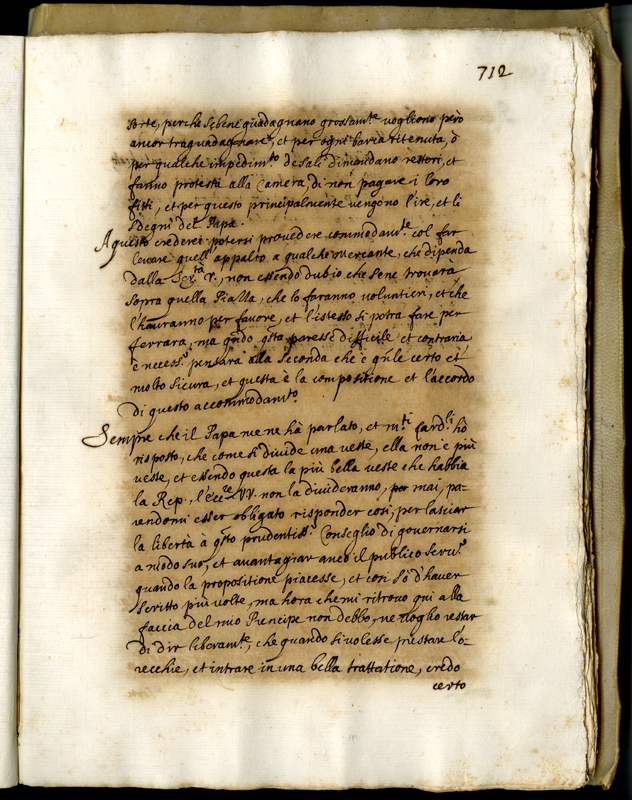 712
sorte, perche sebene guadagnano grossamte vogliono però
ancor traguadagnare, et per ogni baria ritenuta, ò
per qualche impedimto de sali dimandano restori, et
fanno protesta alla Camera, di non pagare i loro
fitti, et per questo principalmente vengono l'ire, et li
sdegni del Papa.
A questo crederei potersi provedere commodamte col far
levare quell'appalto a qualche mercante, che dipenda
dalla Sertà V., non essendo dubio che sene trovarà
sopra quella Piazza, che lo faranno voluntieri, et che
l'hauranno per favore, et l'istesso si potrà fare per
ferrara, ma qñdo qsta paresse difficile et contraria
è necesso pensarà alla seconda che è qñle certo et
molto sicura, et questa è la compositione et l'accordo
di questo accommodamto.
Sempre che il Papa me ne hà parlato, et mti Cardli hò
risposto, che come si divide una veste, ella non è più
veste, et essendo questa la più bella veste che habbia
la Rep., l'Ecce VV. non la divideranno, per mai, pa-
rendomi esser obligato risponder così, per lasciar
la libertà à qsto prudentisso Conseglio di governarsi
a modo suo, et avantagiar anco il publico servo
quando la propositione piacesse, et così sò d'haver
scritto più volte, ma hora che mi ritrovo qui alla
faccia del mio Prencipe non debbo, ne voglio restar
di dir liberamte, che quando si volesse prestare l'o-
recchie, et intrare in una bella trattatione, credo
certo